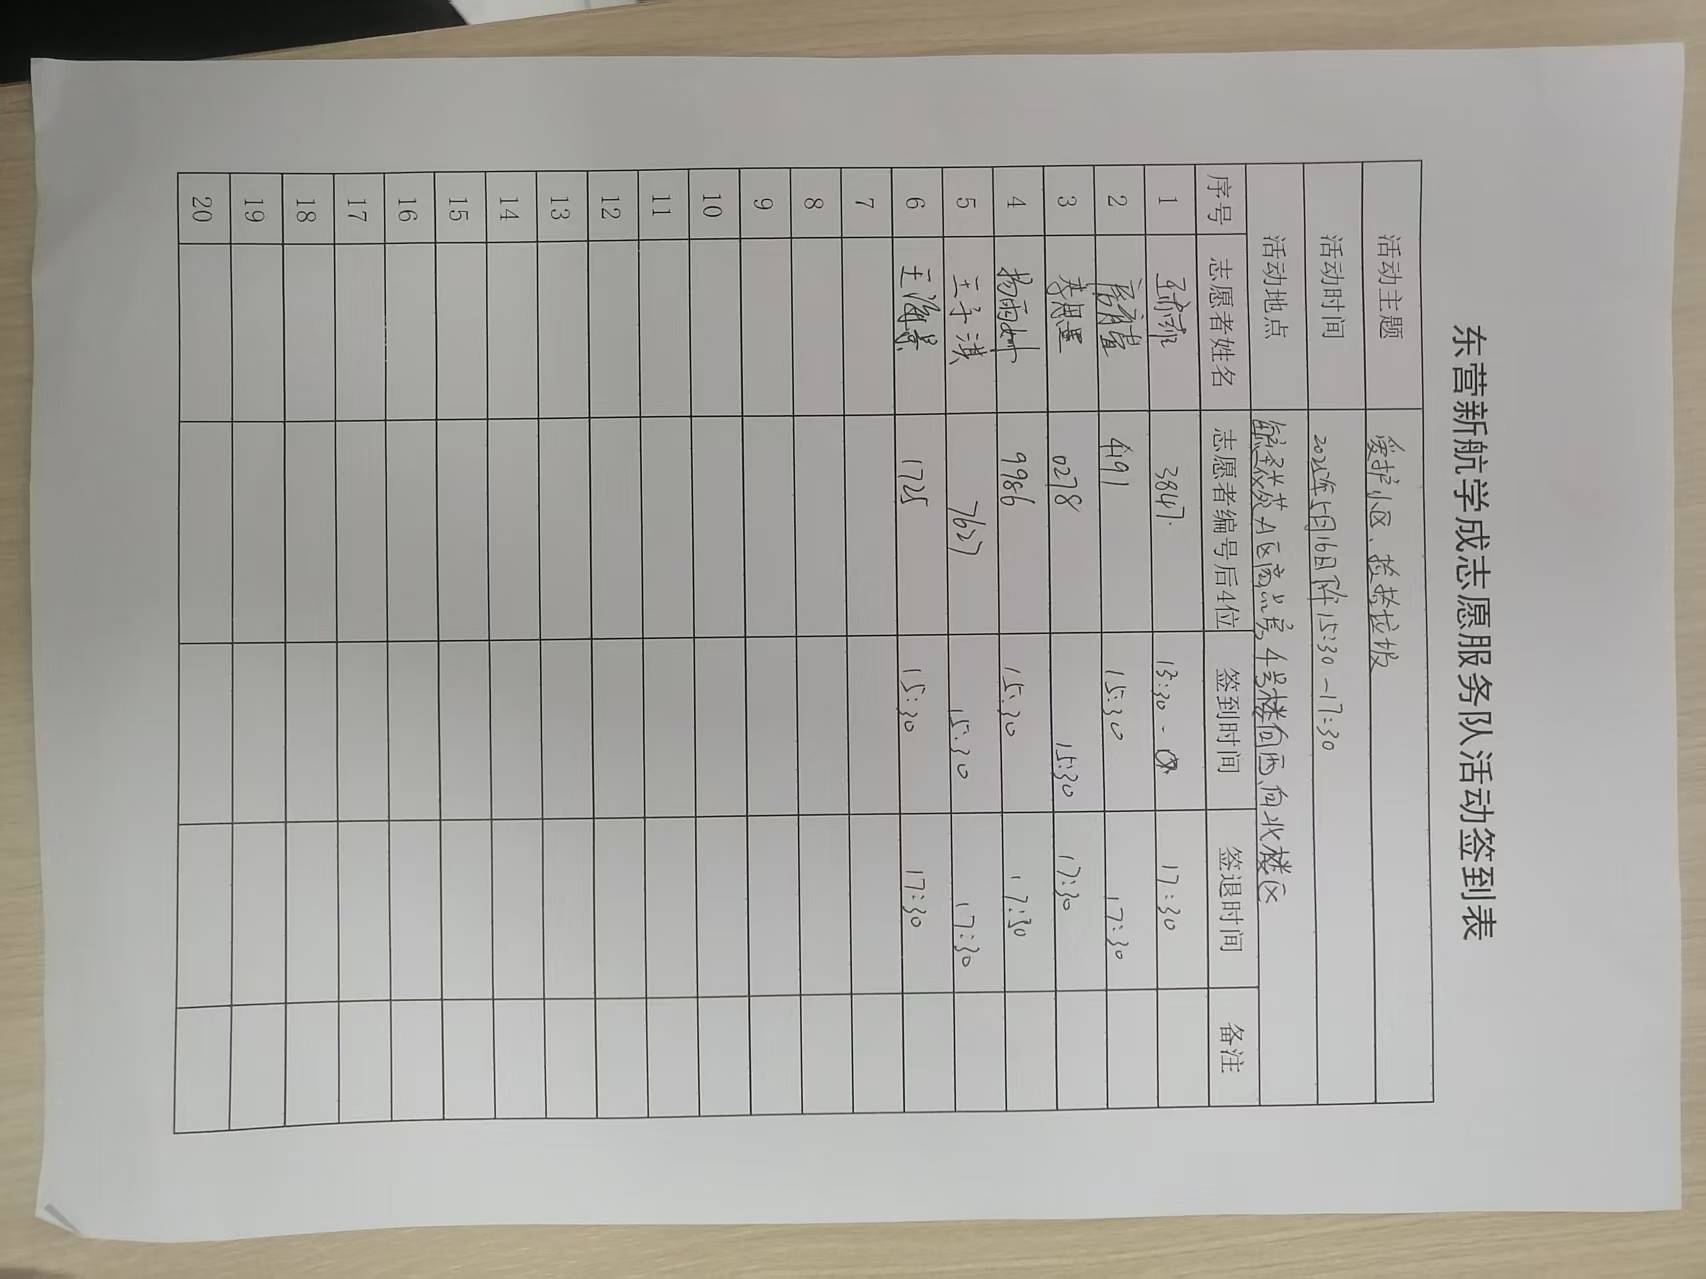 东营新航学成志愿服务队活动签到表
活动主题 爱护小区、捡拾垃圾
活动时间 2025年5月16日下午15:30-17:30
活动地点 A区商品房4号楼向西、向北楼区
序号 志愿者姓名 志愿者编号后4位 签到时间 签退时间 备注
1 3847 17:30
2 4191 15:30 17:30
3 李思墨 0278 15:30 17:30
4 杨雨姗 9986 15:30 17:30
5 王子淇 7627 15:30 17:30
6 王海景 1725 15:30 17:30
7
8
9
10
11
12
13
14
15
16
17
18
19
20